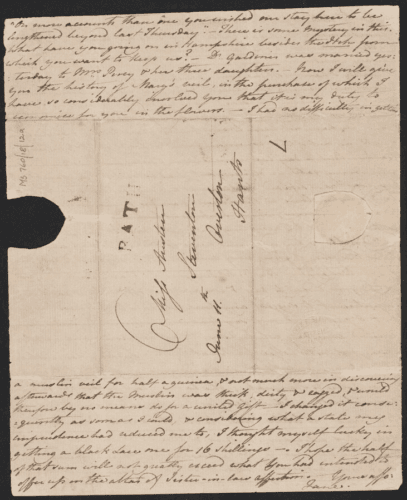 "On more accounts than one you wished our stay here to be
lengthened beyond last Thursday." – There is some Mystery in this.
What have you going on in Hampshire besides the Itch from
which you want to keep us? – Dr Gardiner was married yes:
:terday to Mrs Percy & her three daughters. – Now I will give
you the history of Mary's veil, in the purchase of which I
have so considerably involved you that it is my duty to
economise for you in the flowers. – I had no difficulty in getting
MS 760/18/12A
7
BATH
Miss Austen
Steventon
Overton
Hants
June 11th
a muslin veil for half a guinea, & not much more in discovering
afterwards that the Muslin was thick, dirty & ragged, & would
therefore by no means do for a united Gift. – I changed it conse:
:quently as soon as I could, & considering what a state my
imprudence had reduced me to, I thought myself lucky in
getting a black lace one for 16 shillings –. I hope the half
of that sum will not greatly exceed what You had intended to
offer up on the altar of Sister-in-law affection. – Yours affec:
Jane.